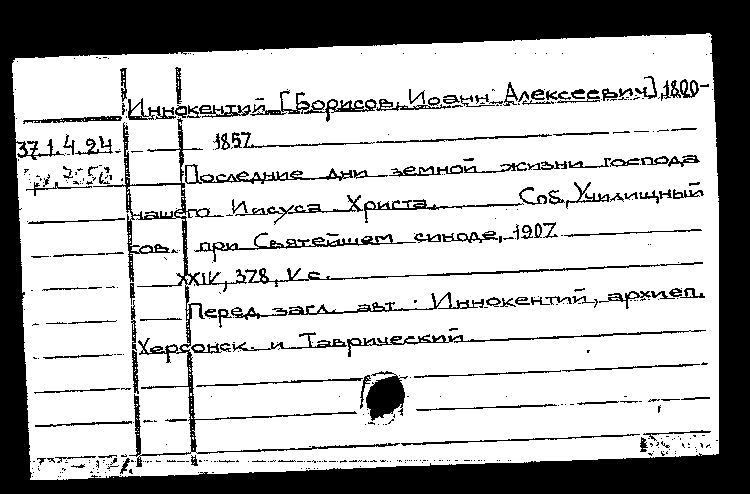 Иннокентий [Борисов, Иоанн Алексеевич], 1800-
37.1.4.24. 1857.
Последние дни земной жизни господа
нашего Иисуса Христа. Спб., Училищный
сов. при Святейшем синоде, 1907.
XXIV, 378, V с.
Перед загл. авт.: Иннокентий, архиеп.
Херсонск. и Таврический.